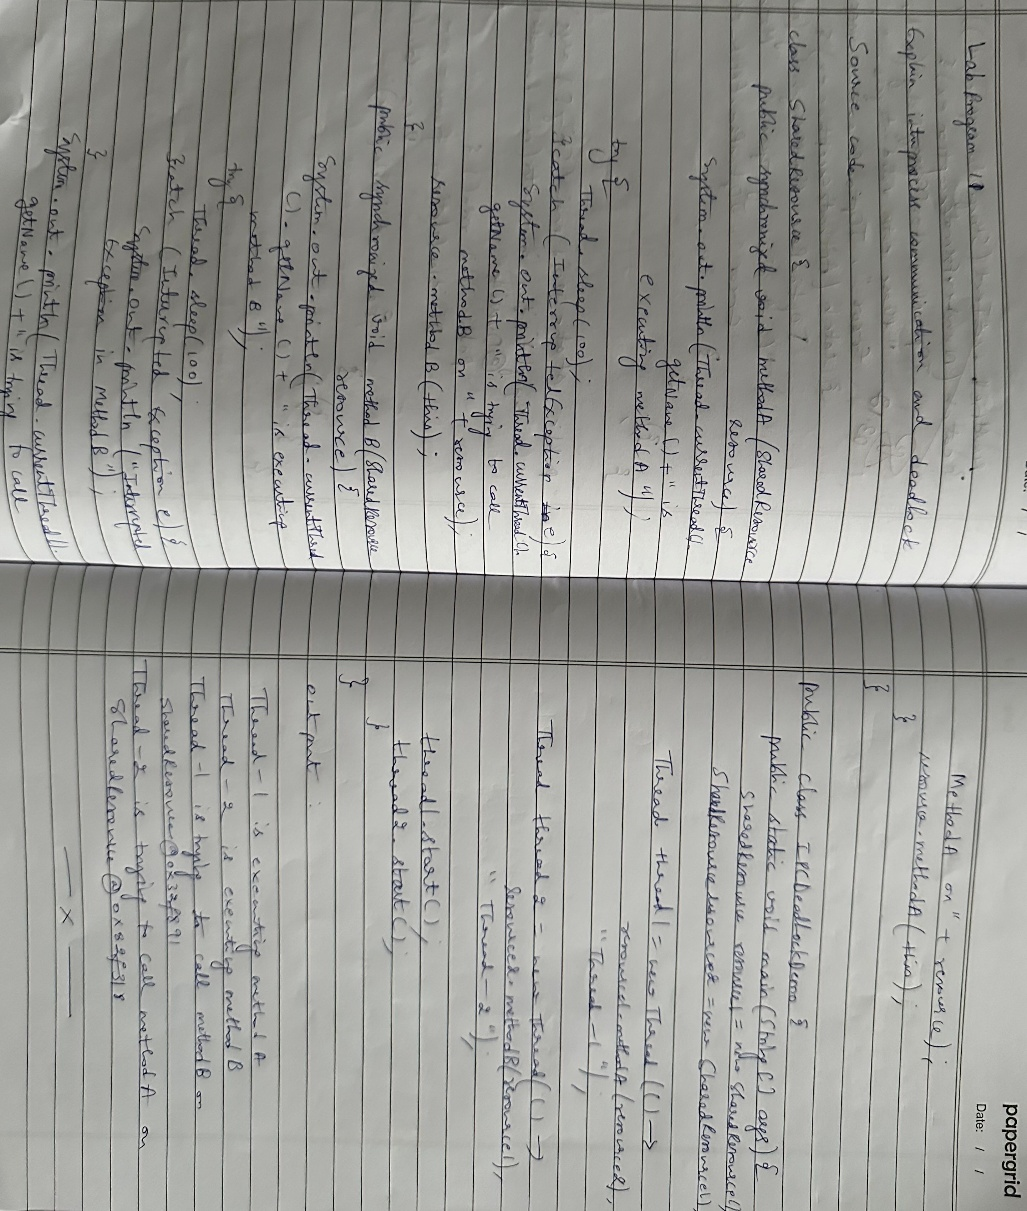 Lab Program 11
Explain interprocess communication and deadlock
Source code.
class SharedResource {
public synchronized void methodA (SharedResource
resource) {
System.out.println(Thread.currentThread().
getName() + " is
executing method A");
try {
Thread.sleep(100);
}catch (InterruptedException e) {
System.out.println(Thread.currentThread().
getName() + " is trying to call
methodB on " + resource);
resource.methodB(this);
}
public synchronized void methodB(SharedResource
resource) {
System.out.println(Thread.currentThread
().getName() + " is executing
method B");
try {
Thread.sleep(100);
}catch (Interrupted Exception e) {
System.out.println("Interrupted
Exception in Method B");
}
System.out.println(Thread.currentThread().
getName() + "is trying to call
papergrid
Date: / /
MethodA on" + resource);
resource.methodA(this);
}
}
public class IPCDeadlockDemo {
public static void main(String[] args) {
SharedResource resource1 = new SharedResource();
SharedResource resource2 = new SharedResource();
Thread thread1 = new Thread(() ->
resource1.methodA(resource2),
"Thread-1");
Thread thread2 = new Thread(() ->
resource2.methodB(resource1),
"Thread-2");
thread1.start();
thread2.start();
}
}
output:
Thread-1 is executing method A
Thread-2 is executing method B
Thread-1 is trying to call method B on
SharedResource@0x32f891
Thread-2 is trying to call method A on
SharedResource@0x82f318
— x —